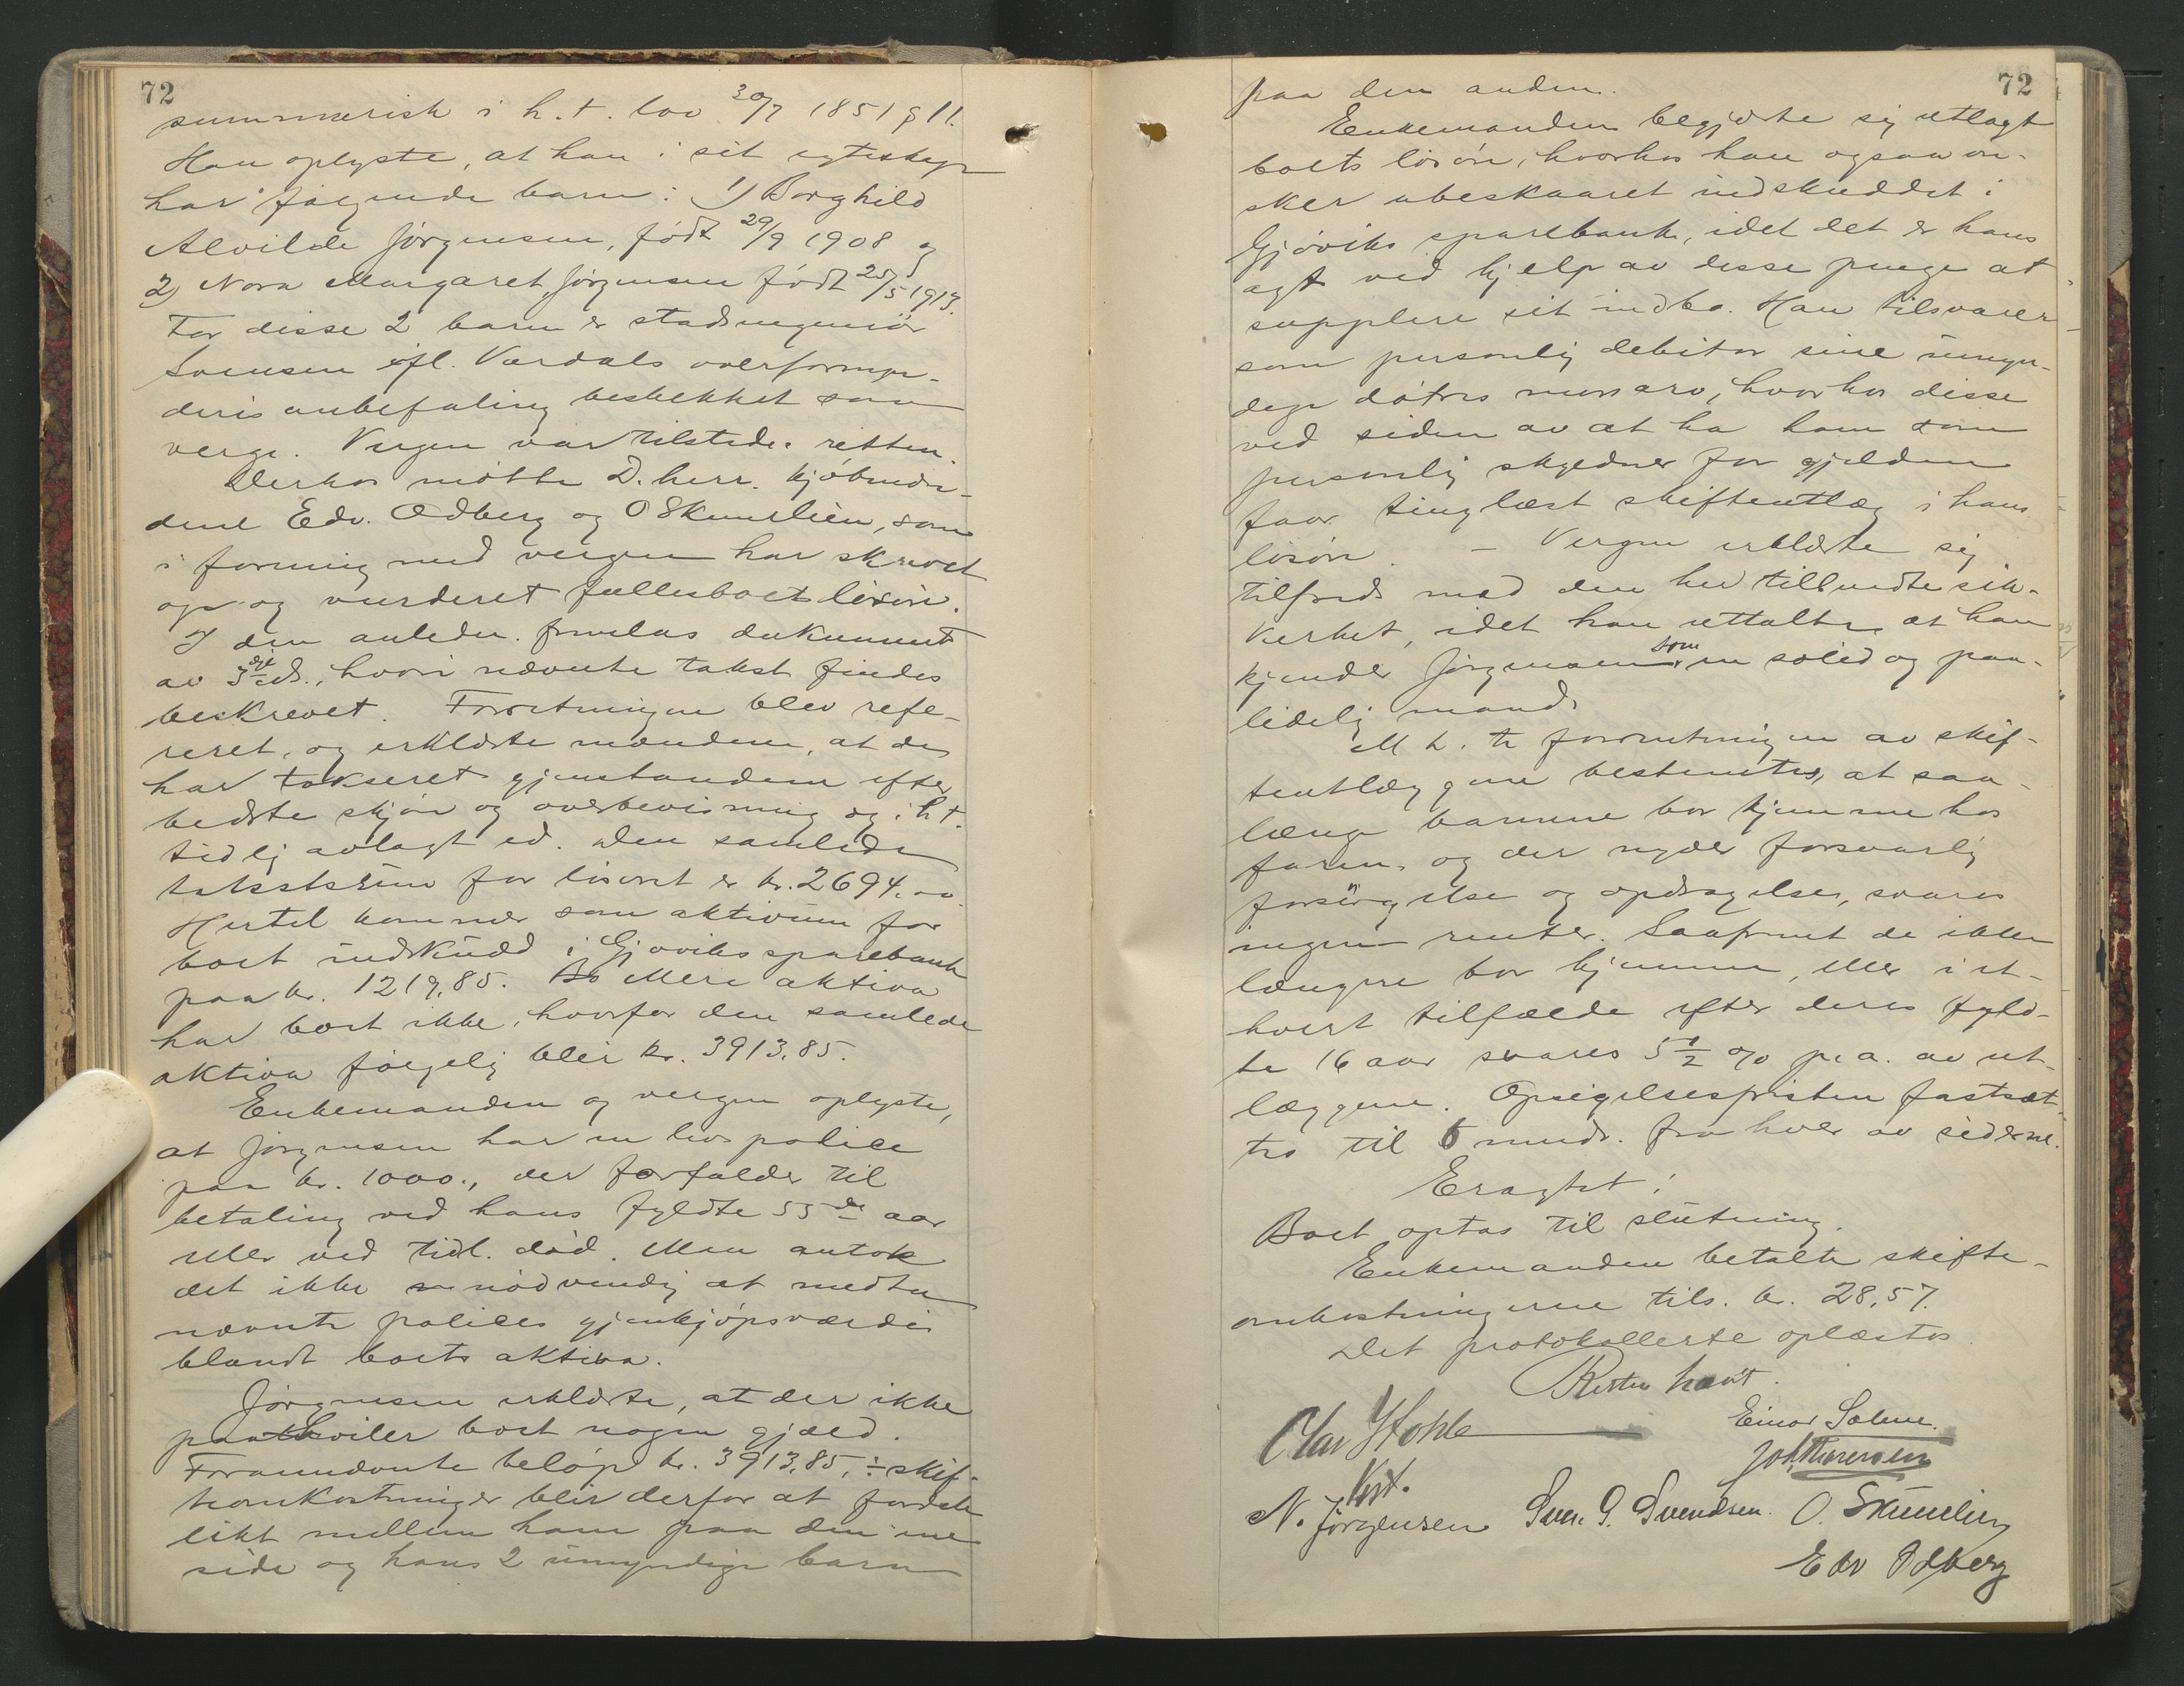 72
summerisk i h. t. lov 30/7 1851 § 11.
Han oplyste, at han i sit egteskap
har følgende barn: 1) Borghild
Alvilde Jörgensen, født 29/9 1908 og
2) Nora Margaret Jörgensen født 25/5 1913.
For disse 2 barn er stadsingeniör
Svensen ifl. Vardals overformyn-
deris anbefaling beskikket som
verge. Vergen var tilstede i retten.
Derhos mötte D. herr. kjöbmæn-
dene Edv. Odberg og O Skundlien, som
i forening med vergen har skrevet
op og vurderet fællesboets lösöre.
I den anledn. fremlas dokument
av 3dje ds., hvori nævnte takst findes
beskrevet. Forretningen blev refe-
reret, og erklærte mændene, at de
har takseret gjenstandene efter
bedste skjön og overbevisning og i h t.
tidlig avlagt ed. Den samlede
takstsum for lösöret er kr. 2694.00
Hertil kommer som aktivum for
boet indskudd i Gjöviks sparebank
paa kr. 1219,85. Mere aktiva
har boet ikke, hvorfor den samlede
aktiva fölgelig blir kr. 3913,85.
Enkemanden og vergen oplyste,
at Jörgensen har en livspolice
paa kr. 1000., der forfalder til
betaling ved hans fyldte 55de aar
eller ved tidl. död. Man antok
det ikke nödvendig at medta
nævnte polices gjenkjöpsværdi
blandt boets aktiva.
Jörgensen erklærte, at der ikke
paahviler boet nogen gjæld.
Forannævnte belöp kr. 3913,85, ÷ skif-
teomkostninger blir derfor at fordele
likt mellem ham paa den ene
side og hans 2 umyndige barn
72
paa den anden.
Enkemanden begjærte sig utlagt
boets lösöre, hvorhos han ogsaa ön-
sker ubeskaaret indskuddet i
Gjöviks sparebank, idet det er hans
agt ved hjelp av disse penge at
supplere sit indbo. Han tilsvarer
som personlig debitor sine umyn-
dige dötres morsarv, hvorhos disse
ved siden av at ha ham som
personlig skyldner for gjælden
faar tinglæst skifteutlæg i hans
lösöre. – Vergen erklærte sig
tilfreds med den her tilbudte sik-
kerhet, idet han uttalte, at han
kjender Jörgensen som en solid og paa-
lidelig mand.
M. h. t. forrentningen av skif-
teutlæggene bestemtes, at saa-
længe barnene bor hjemme hos
faren, og der nyder forsvarlig
forsörgelse og opdragelse, svares
ingen renter. Saafremt de ikke
længere bor hjemme, eller i et-
hvert tilfælde efter deres fyld-
te 16 aar svares 5½ % p. a. av ut-
læggene. Opsigelsesfristen fastsæt-
tes til 6 mndr. fra hver av siderne.
Eragtet:
Boet optas til slutning.
Enkemanden betalte skifte-
omkostningerne tils. kr. 28,57.
Det protokollerte oplæstes.
Retten hævet.
Olav Hohle
Kst.
Einar Solem.
Joh Thoresen
N. Jörgensen Sven G. Svendsen. O. Skundlien
Edv Odberg